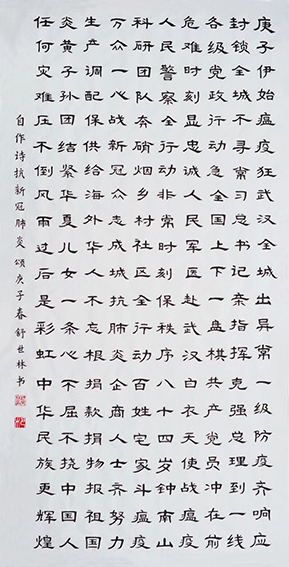 庚子伊始瘟疫狂武汉全城出异常一级防疫齐响应
封锁全城不寻常习总书记亲指挥克强总理到一线
各级党政行动急全国上下一盘棋共产党员冲在前
危难时刻显忠诚人民军医赴武汉白衣天使战瘟疫
人民警察全行动非常时刻保秩序八十四岁钟南山
科研团队奔硝烟乡村社区全行动百姓宅家斗瘟疫
万众一心战新冠众志成城抗肺炎企商人士齐努力
生产调配保供给海外华人不忘根捐款捐物报祖国
炎黄子孙团结紧华夏儿女一条心不屈不挠中国人
任何灾难压不倒风雨过后是彩虹中华民族更辉煌
自作诗抗新冠肺炎颂庚子春舒世林书